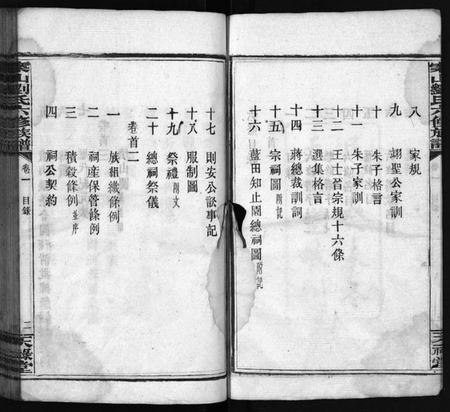 八 家規
九 翊聖公家訓
十 朱子格言
十一 朱子家訓
十二 王士晉宗規十六條
十三 選集格言
十四 蔣總裁訓詞
十五 宗祠圖 附記
十六 藍田知止閣總祠圖 附記
十七 則安公訟事記
十八 服制圖
十九 祭禮 附文
二十 總祠祭儀
卷首二
一 族組織條例
二 祠產保管條例
三 積穀條例 並序
四 祠公契約
劉氏六修族譜
卷一 目錄
二
天祿堂